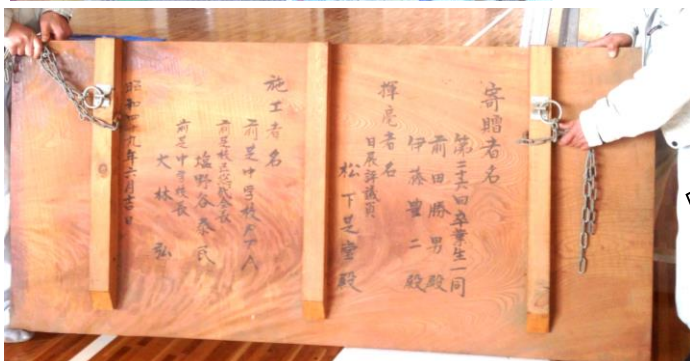 寄贈者名
第二十六回卒業生一同
前田勝男殿
伊藤豊二殿
揮毫者名
日展評議員
松下芝堂殿
施工者名
前芝中学校PTA
塩野谷泰民
前芝中学校長
大林弘
昭和四十九年六月吉日